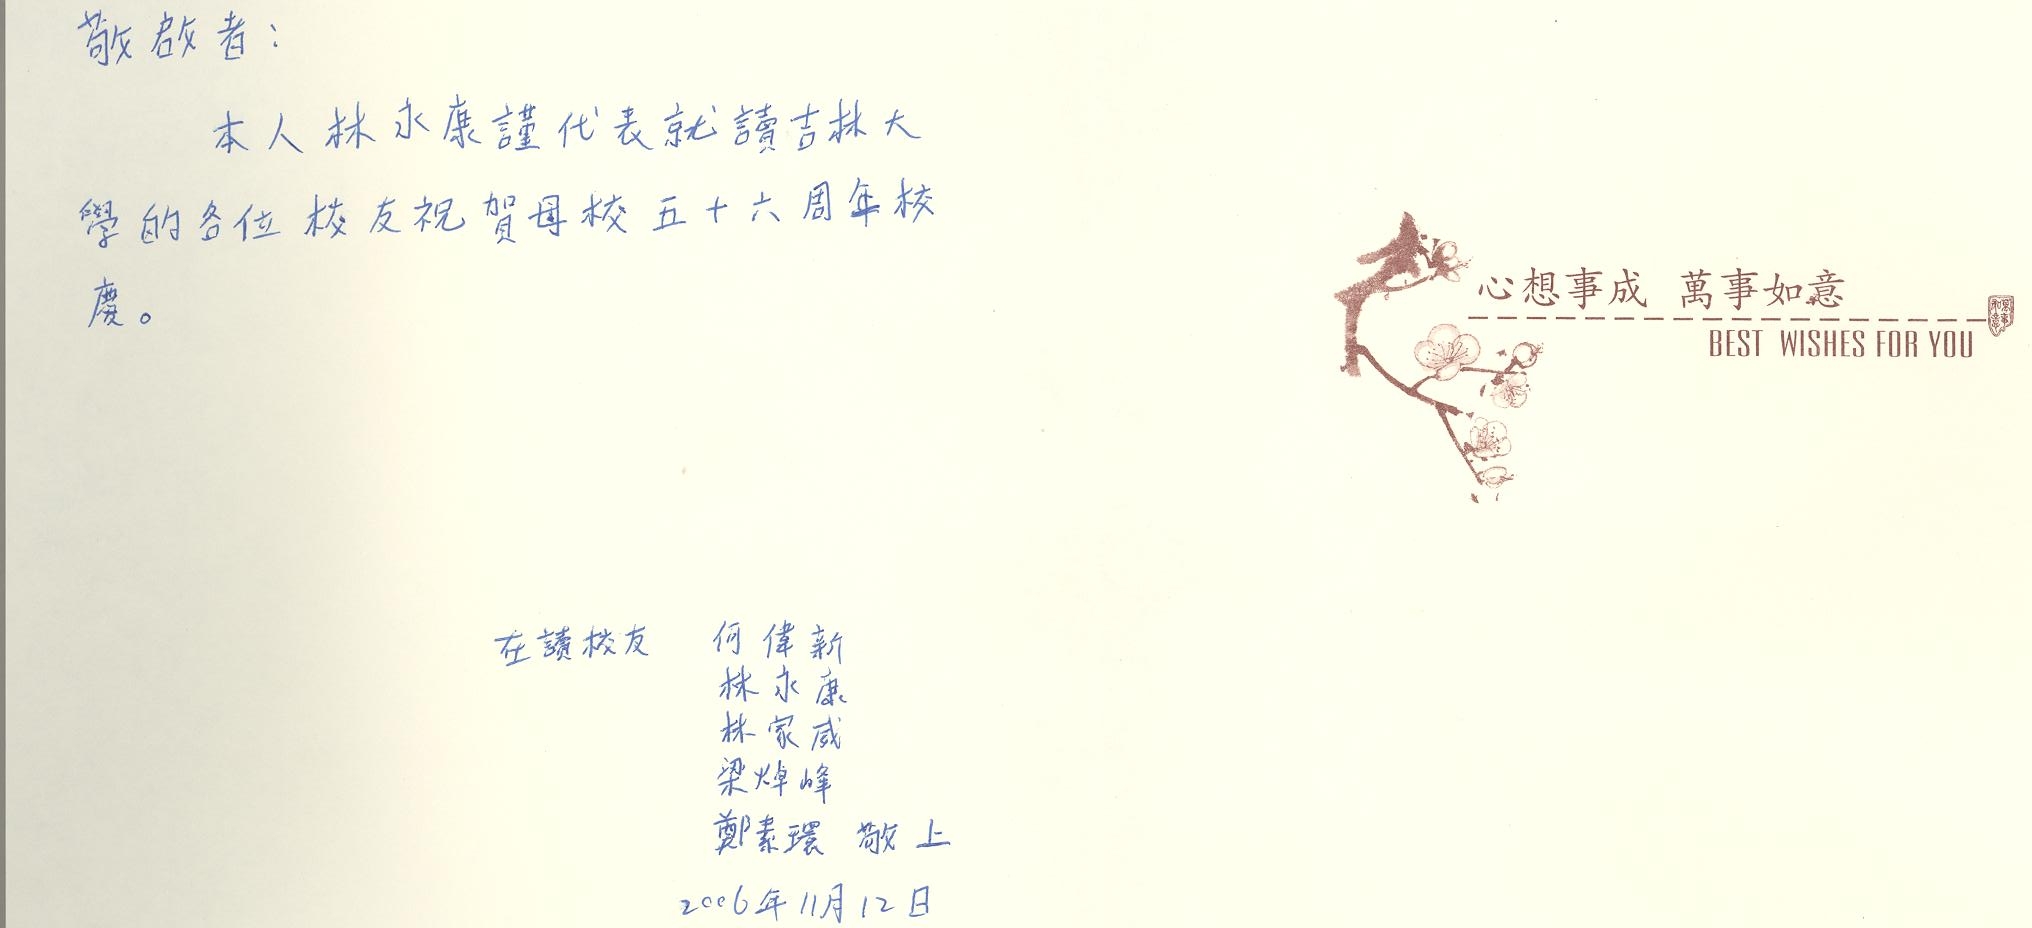 敬啟者：
本人林永康謹代表就讀吉林大
學的各位校友祝賀母校五十六周年校
慶。
在讀校友 何偉新
林永康
林家威
梁焯峰
鄭素環 敬上
2006年11月12日
心想事成 萬事如意
萬事如意
BEST WISHES FOR YOU